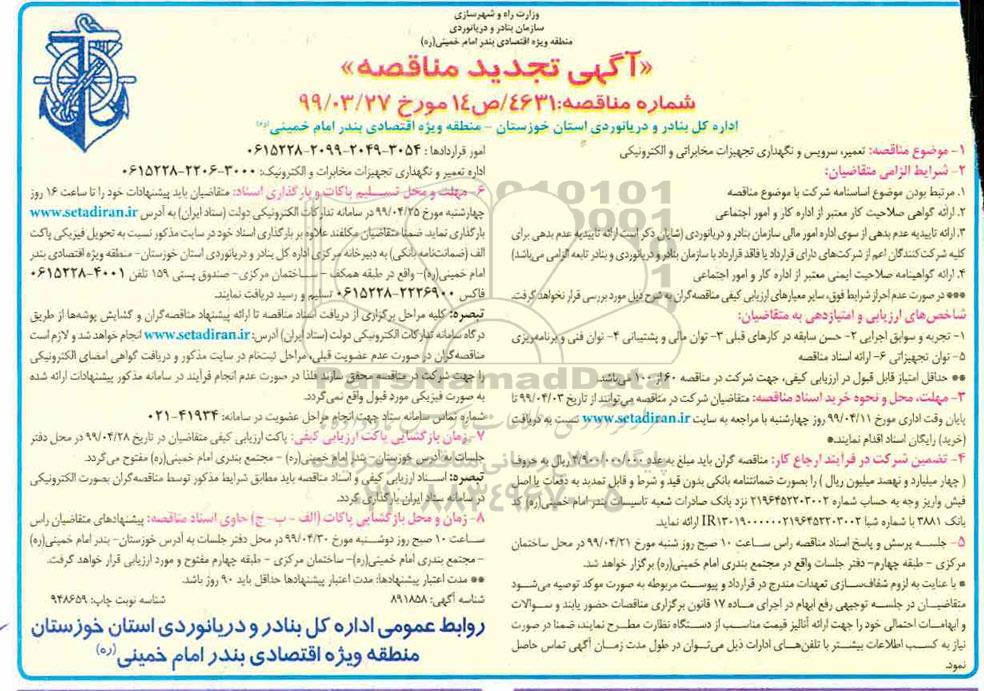 وزارت راه و شهرسازی
سازمان بنادر و دریانوردی
منطقه ویژه اقتصادی بندر امام خمینی(ره)
«آگهی تجدید مناقصه»
شماره مناقصه:۴۶۳۱/ص۱۴ مورخ ۹۹/۰۳/۲۷
اداره کل بنادر و دریانوردی استان خوزستان - منطقه ویژه اقتصادی بندر امام خمینی(ره)
۱- موضوع مناقصه: تعمیر، سرویس و نگهداری تجهیزات مخابراتی و الکترونیکی
۲- شرایط الزامی متقاضیان:
۱. مرتبط بودن موضوع اساسنامه شرکت با موضوع مناقصه
۲. ارائه گواهی صلاحیت کار معتبر از اداره کار و امور اجتماعی
۳. ارائه تاییدیه عدم بدهی از سوی اداره امور مالی سازمان بنادر و دریانوردی (شایان ذکر است ارائه تاییدیه عدم بدهی برای
کلیه شرکت‌کنندگان اعم از شرکت‌های دارای قرارداد یا فاقد قرارداد با سازمان بنادر و دریانوردی و بنادر تابعه الزامی می‌باشد)
۴. ارائه گواهینامه صلاحیت ایمنی معتبر از اداره کار و امور اجتماعی
*** در صورت عدم احراز شرایط فوق، سایر معیارهای ارزیابی کیفی مناقصه‌گران به شرح ذیل مورد بررسی قرار نخواهد گرفت.
شاخص‌های ارزیابی و امتیازدهی به متقاضیان:
۱- تجربه و سوابق اجرایی ۲- حسن سابقه در کارهای قبلی ۳- توان مالی و پشتیبانی ۴- توان فنی و برنامه‌ریزی
۵- توان تجهیزاتی ۶- ارائه اسناد مناقصه
** حداقل امتیاز قابل قبول در ارزیابی کیفی، جهت شرکت در مناقصه ۶۰ از ۱۰۰ می‌باشد.
۳- مهلت، محل و نحوه خرید اسناد مناقصه: متقاضیان شرکت در مناقصه می‌توانند از تاریخ ۹۹/۰۴/۰۳ تا
پایان وقت اداری مورخ ۹۹/۰۴/۱۱ روز چهارشنبه با مراجعه به سایت www.setadiran.ir نسبت به دریافت
(خرید) رایگان اسناد اقدام نمایند.*
۴- تضمین شرکت در فرآیند ارجاع کار: مناقصه گران باید مبلغ به عدد ۴/۹۰۰/۰۰۰/۰۰۰ ریال به حروف
( چهار میلیارد و نهصد میلیون ریال ) را بصورت ضمانتنامه بانکی بدون قید و شرط و قابل تمدید به دفعات یا اصل
فیش واریز وجه به حساب شماره ۲۱۹۶۴۵۲۲۰۳۰۰۲ نزد بانک صادرات شعبه تاسیسات بندر امام خمینی(ره) کد
بانک ۳۸۸۱ با شماره شبا IR۱۳۰۱۹۰۰۰۰۰۰۲۱۹۶۴۵۲۲۰۳۰۰۲ ارائه نماید.
۵- جلسه پرسش و پاسخ اسناد مناقصه راس ساعت ۱۰ صبح روز شنبه مورخ ۹۹/۰۴/۲۱ در محل ساختمان
مرکزی - طبقه چهارم- دفتر جلسات واقع در مجتمع بندری امام خمینی(ره) برگزار خواهد شد.
* با عنایت به لزوم شفاف‌سازی تعهدات مندرج در قرارداد و پیوست مربوطه به صورت موکد توصیه می‌شود
متقاضیان در جلسه توجیهی رفع ابهام در اجرای ماده ۱۷ قانون برگزاری مناقصات حضور یابند و سوالات
و ابهامات احتمالی خود را جهت ارائه آنالیز قیمت مناسب از دستگاه نظارت مطرح نمایند، ضمنا در صورت
نیاز به کسب اطلاعات بیشتر با تلفن‌های ادارات ذیل می‌توان در طول مدت زمان آگهی تماس حاصل
نمود.
امور قراردادها : ۳۰۵۴-۲۰۴۹-۲۰۹۹-۰۶۱۵۲۲۸
اداره تعمیر و نگهداری تجهیزات مخابرات و الکترونیک: ۳۰۰۰-۲۲۰۶-۰۶۱۵۲۲۸
۶- مهلت و محل تسلیم پاکات و بارگذاری اسناد: متقاضیان باید پیشنهادات خود را تا ساعت ۱۶ روز
چهارشنبه مورخ ۹۹/۰۴/۲۵ در سامانه تدارکات الکترونیکی دولت (ستاد ایران) به آدرس www.setadiran.ir
بارگذاری نماید. ضمنا متقاضیان مکلفند علاوه بر بارگذاری اسناد خود در سایت مذکور نسبت به تحویل فیزیکی پاکت
الف (ضمانت‌نامه بانکی) به دبیرخانه مرکزی اداره کل بنادر و دریانوردی استان خوزستان- منطقه ویژه اقتصادی بندر
امام خمینی(ره)- واقع در طبقه همکف - ساختمان مرکزی- صندوق پستی ۱۵۹ تلفن ۴۰۰۱-۰۶۱۵۲۲۸
فاکس ۲۲۲۶۹۰۰-۰۶۱۵۲۲۸ تسلیم و رسید دریافت نمایند.
تبصره: کلیه مراحل برگزاری از دریافت اسناد مناقصه تا ارائه پیشنهاد مناقصه‌گران و گشایش پوشه‌ها از طریق
درگاه سامانه تدارکات الکترونیکی دولت (ستاد ایران) آدرس: www.setadiran.ir انجام خواهد شد و لازم است
مناقصه‌گران در صورت عدم عضویت قبلی، مراحل ثبت‌نام در سایت مذکور و دریافت گواهی امضای الکترونیکی
را جهت شرکت در مناقصه محقق سازند فلذا در صورت عدم انجام فرآیند در سامانه مذکور پیشنهادات ارائه شده
به صورت فیزیکی مورد قبول واقع نمی‌گردد.
شماره تماس سامانه ستاد جهت انجام مراحل عضویت در سامانه: ۴۱۹۳۴-۰۲۱
۷- زمان بازگشایی پاکت ارزیابی کیفی: پاکت ارزیابی کیفی متقاضیان در تاریخ ۹۹/۰۴/۲۸ در محل دفتر
جلسات به آدرس خوزستان- بندر امام خمینی(ره) - مجتمع بندری امام خمینی(ره) مفتوح می‌گردد.
تبصره: اسناد ارزیابی کیفی و اسناد مناقصه باید مطابق شرایط مذکور توسط مناقصه‌گران بصورت الکترونیکی
در سامانه ستاد ایران بارگذاری گردد.
۸- زمان و محل بازگشایی پاکات (الف - ب - ج) حاوی اسناد مناقصه: پیشنهادهای متقاضیان راس
ساعت ۱۰ صبح روز دوشنبه مورخ ۹۹/۰۴/۳۰ در محل دفتر جلسات به آدرس خوزستان- بندر امام خمینی(ره)
- مجتمع بندری امام خمینی(ره)- ساختمان مرکزی - طبقه چهارم مفتوح و مورد ارزیابی قرار خواهد گرفت.
** مدت اعتبار پیشنهادها: مدت اعتبار پیشنهادها حداقل باید ۹۰ روز باشد.
شناسه آگهی: ۸۹۱۸۵۸ شناسه نوبت چاپ: ۹۴۸۶۵۹
روابط عمومی اداره کل بنادر و دریانوردی استان خوزستان
منطقه ویژه اقتصادی بندر امام خمینی(ره)
ParsNamadData